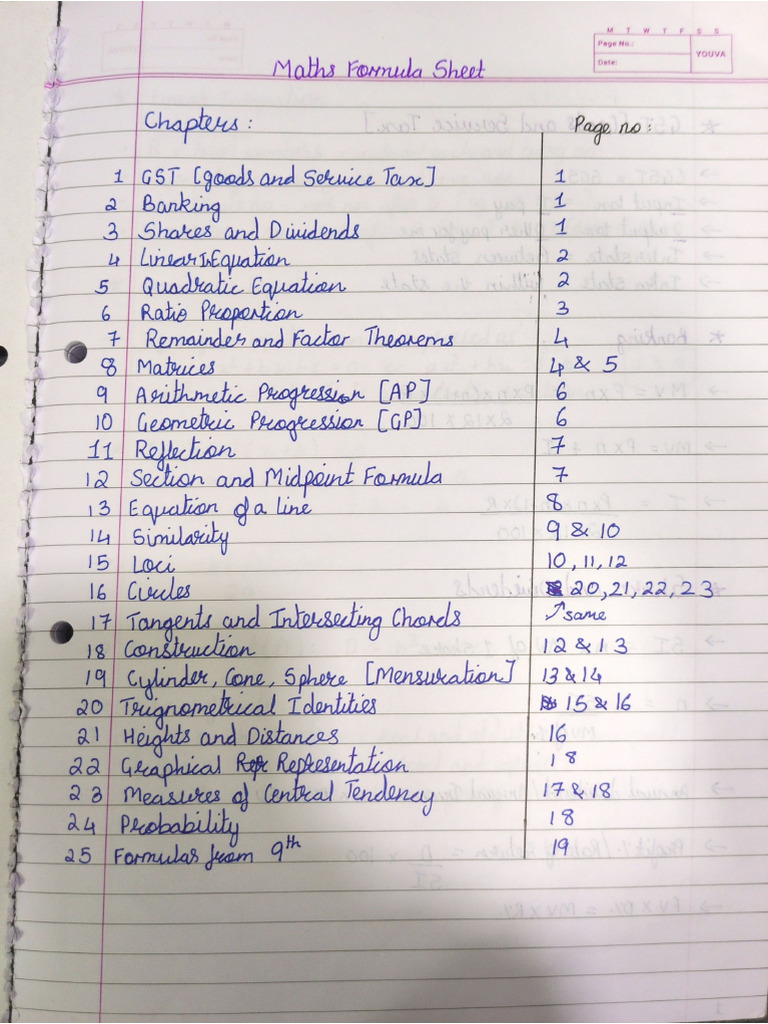 M T W T F S S
Page No.:
YOUVA
Date:
Maths Formula Sheet
Chapters: Page no:
1 GST [goods and Service Tax] 1
2 Banking 1
3 Shares and Dividends 1
4 Linear InEquation 2
5 Quadratic Equation 2
6 Ratio Proportion 3
7 Remainder and Factor Theorems 4
8 Matrices 4 & 5
9 Arithmetic Progression [AP] 6
10 Geometric Progression [GP] 6
11 Reflection 7
12 Section and Midpoint Formula 7
13 Equation of a line 8
14 Similarity 9 & 10
15 Loci 10, 11, 12
16 Circles 20, 21, 22, 23
17 Tangents and Intersecting Chords same
18 Construction 12 & 13
19 Cylinder, Cone, Sphere [Mensuration] 13 & 14
20 Trignometrical Identities 15 & 16
21 Heights and Distances 16
22 Graphical Representation 18
23 Measures of Central Tendency 17 & 18
24 Probability 18
25 Formulas from 9th 19